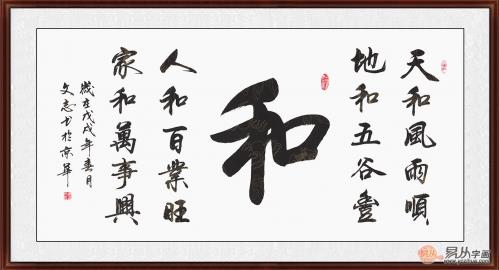 天和風雨順
地和五谷豐
和
人和百業旺
家和萬事興
歲在戊戌年春月
文志书於京華
易从字画
www.yczihua.com